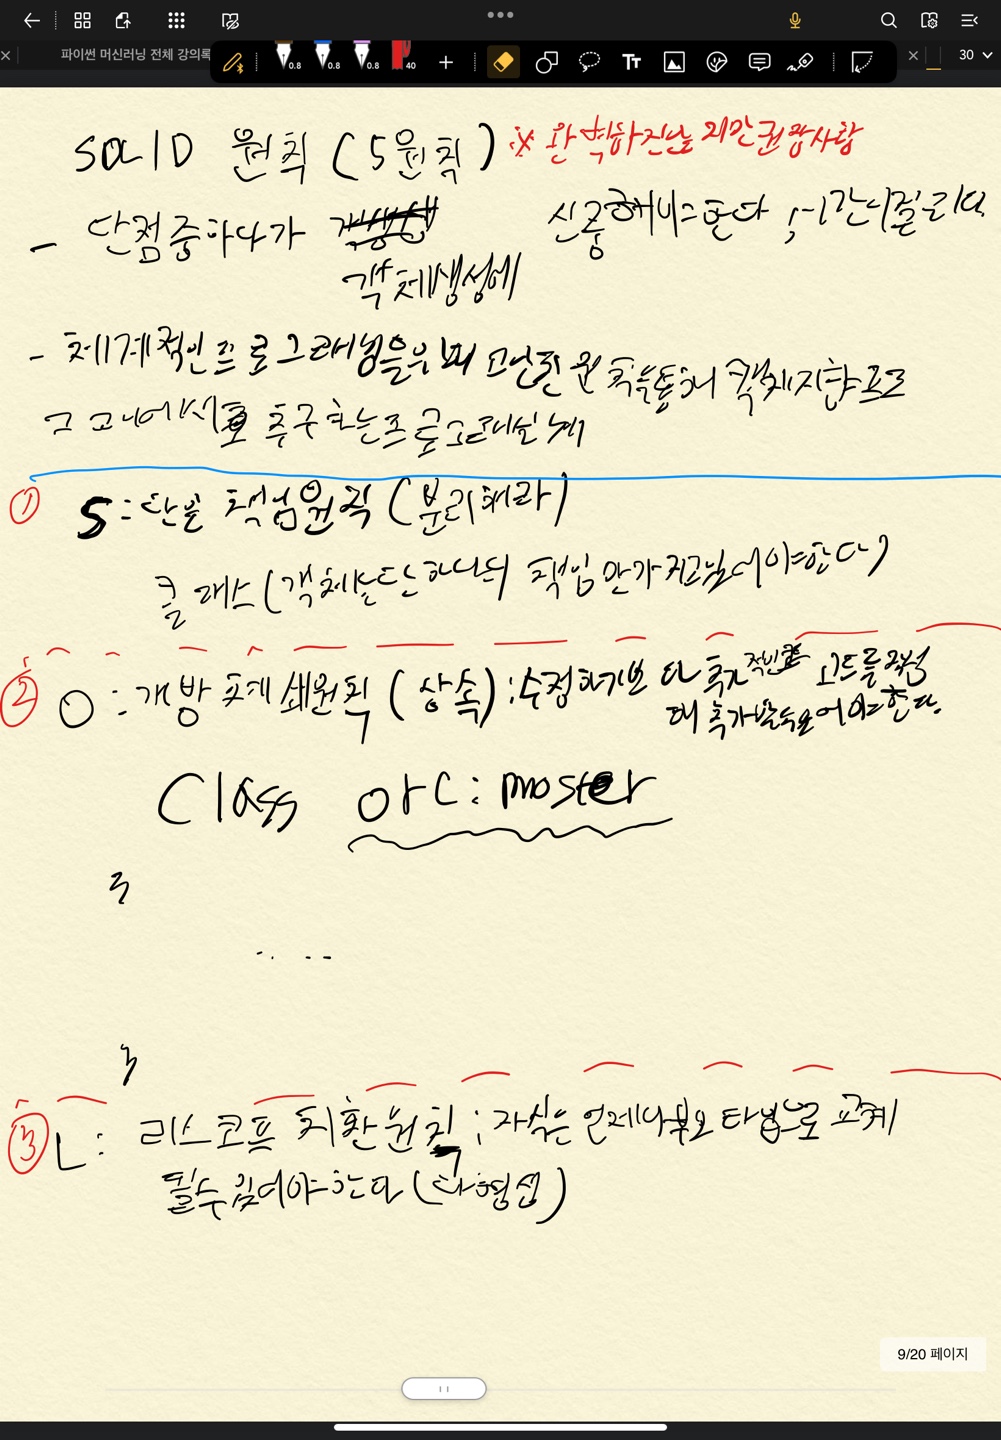 파이썬 머신러닝 전체 강의록
0.8 0.8 0.8 40
30
SOLID 원칙 (5원칙) ※ 완벽하진 않지만 권장사항
- 단점중하나가 객체생성에 신중해야한다 ; 시간이걸린다
- 체계적인프로그래밍을위해 고안된 원칙을통해 객체지향프로
그 추구하는프로그래밍
① S : 단일 책임원칙 (분리해라)
클래스(객체)는단하나의 책임만가지고있어야한다)
② O : 개방폐쇄원칙 (상속) : 수정하기보다 추가적인 코드를작성
해 추가할수있어야한다.
Class orc : moster
....
③ L : 리스코프 치환원칙 ; 자식은 언제나부모타입으로 교체
될수있어야한다 (다형성)
9/20 페이지